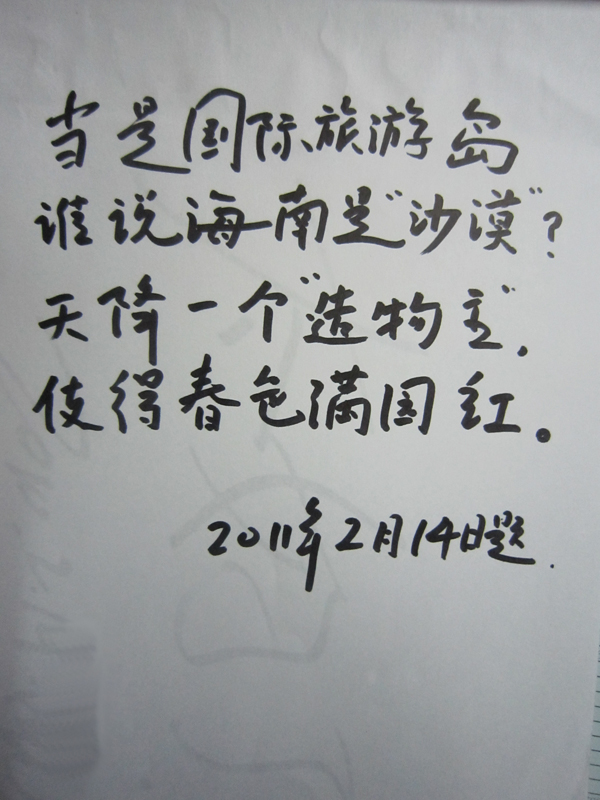 当是国际旅游岛
谁说海南是"沙漠"？
天降一个"造物主"，
使得春色满国红。
2011年2月14日题.